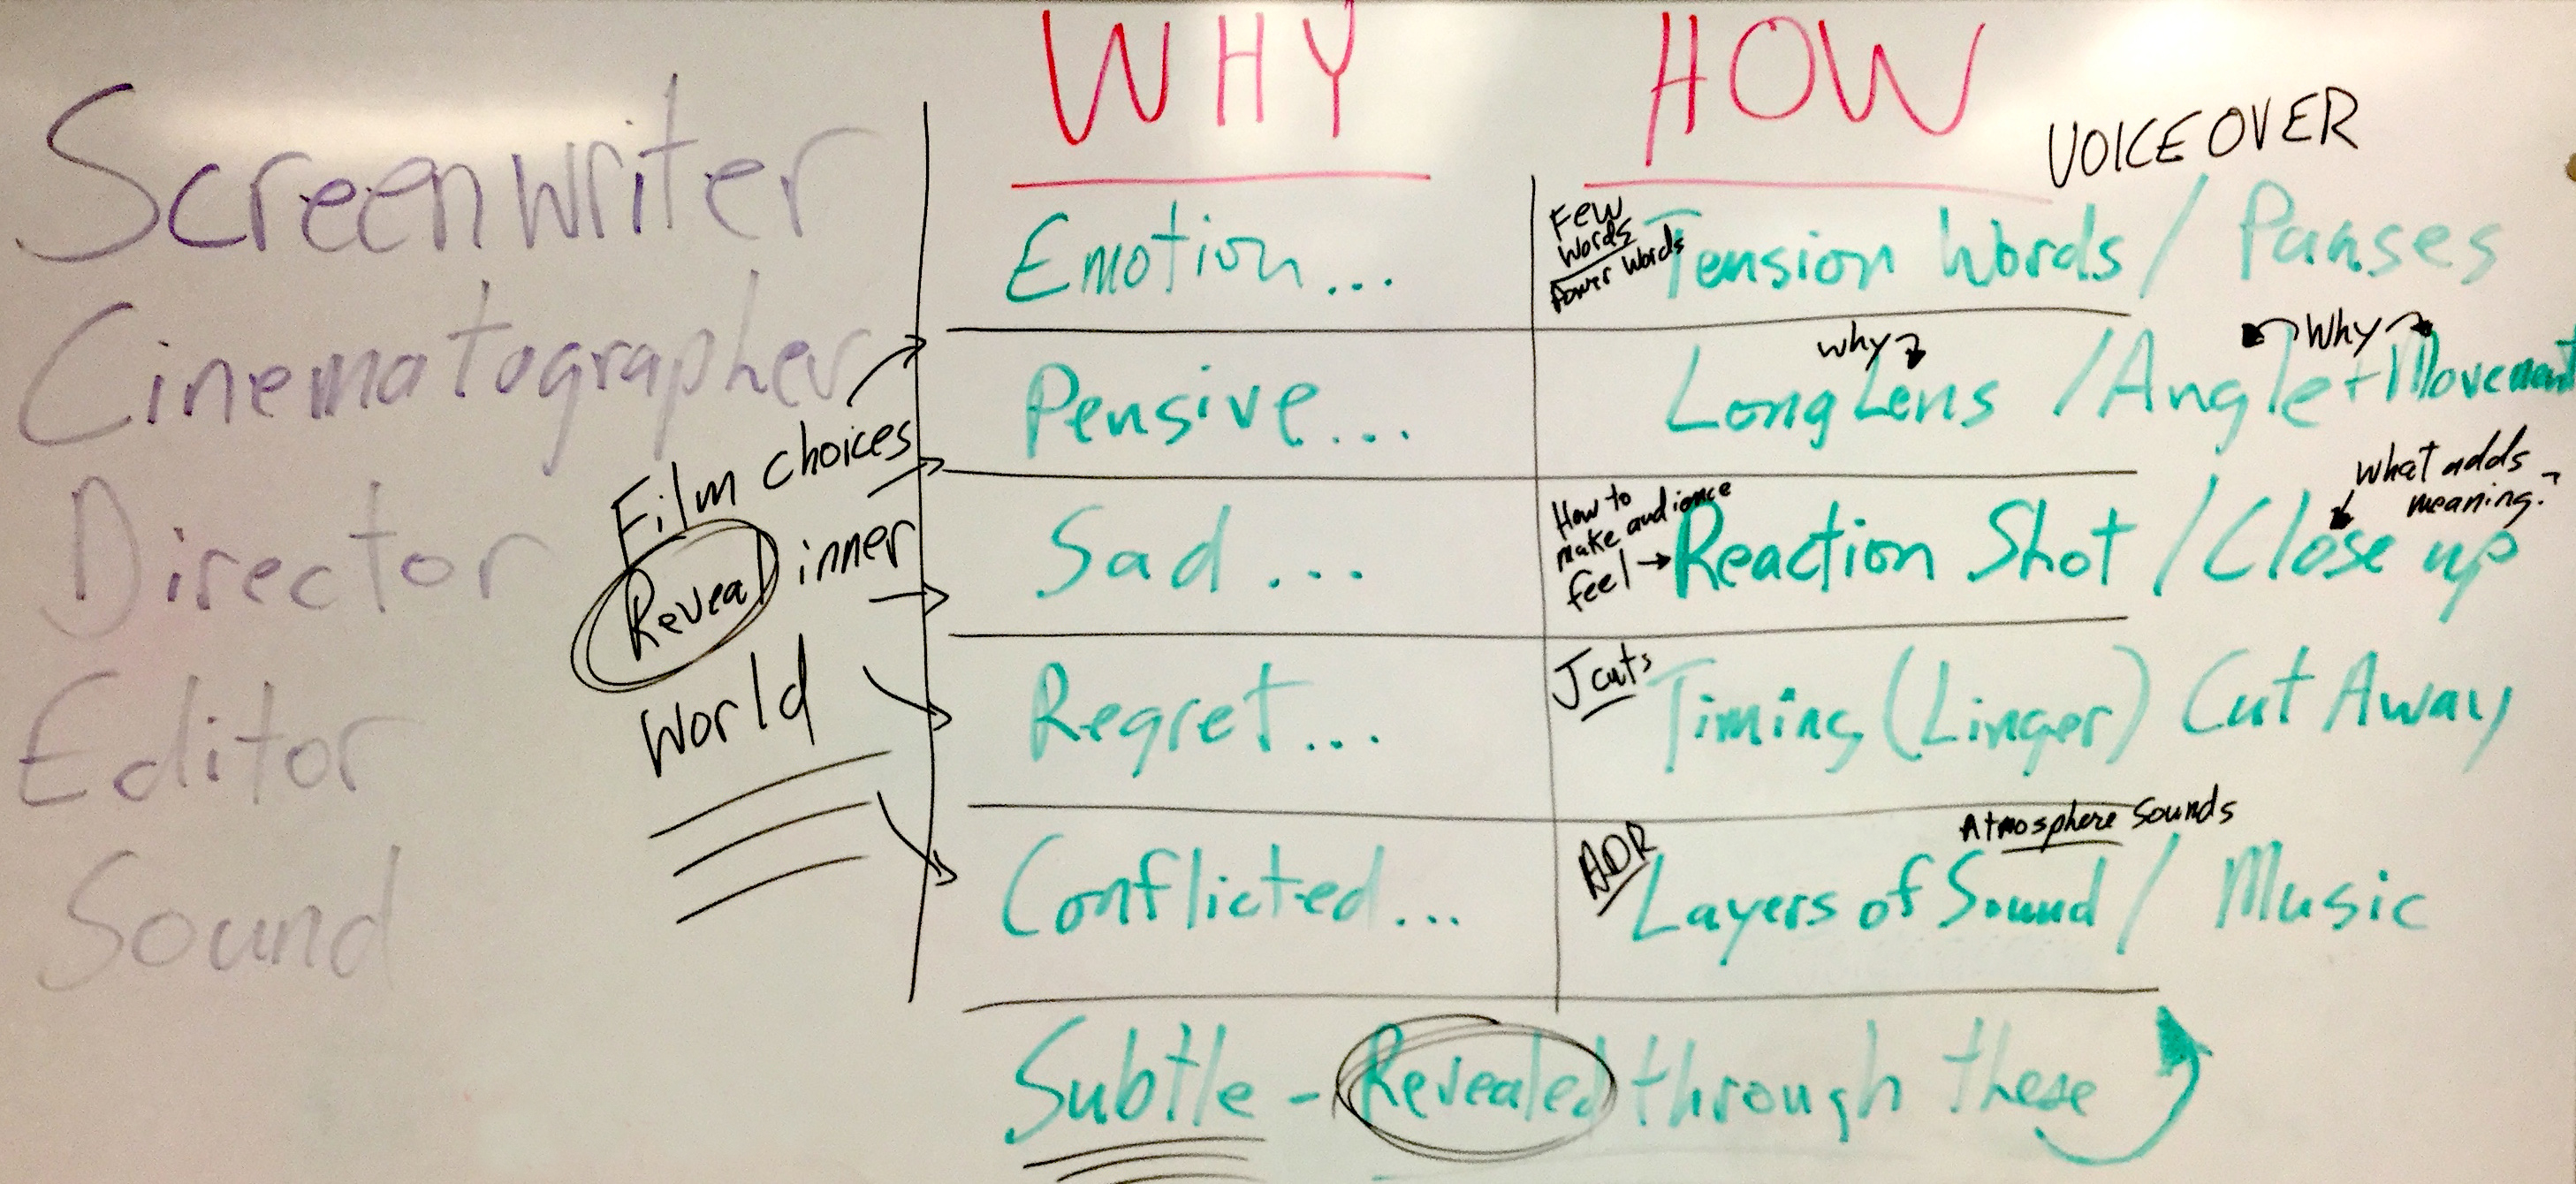 WHY HOW
VOICE OVER
Screenwriter
Emotion...
Few
Words
Power Words
Tension Words / Pauses
Cinematographer
Pensive...
why
Why
Long Lens / Angle + Movement
Film choices
Reveal inner
World
Director
Sad...
How to
make audience
feel →
Reaction Shot / Close up
What adds
meaning?
Editor
Regret...
J cuts
Timing (Linger) Cut Away
Sound
Conflicted...
ADR
Atmosphere Sounds
Layers of Sound / Music
Subtle - Revealed through these